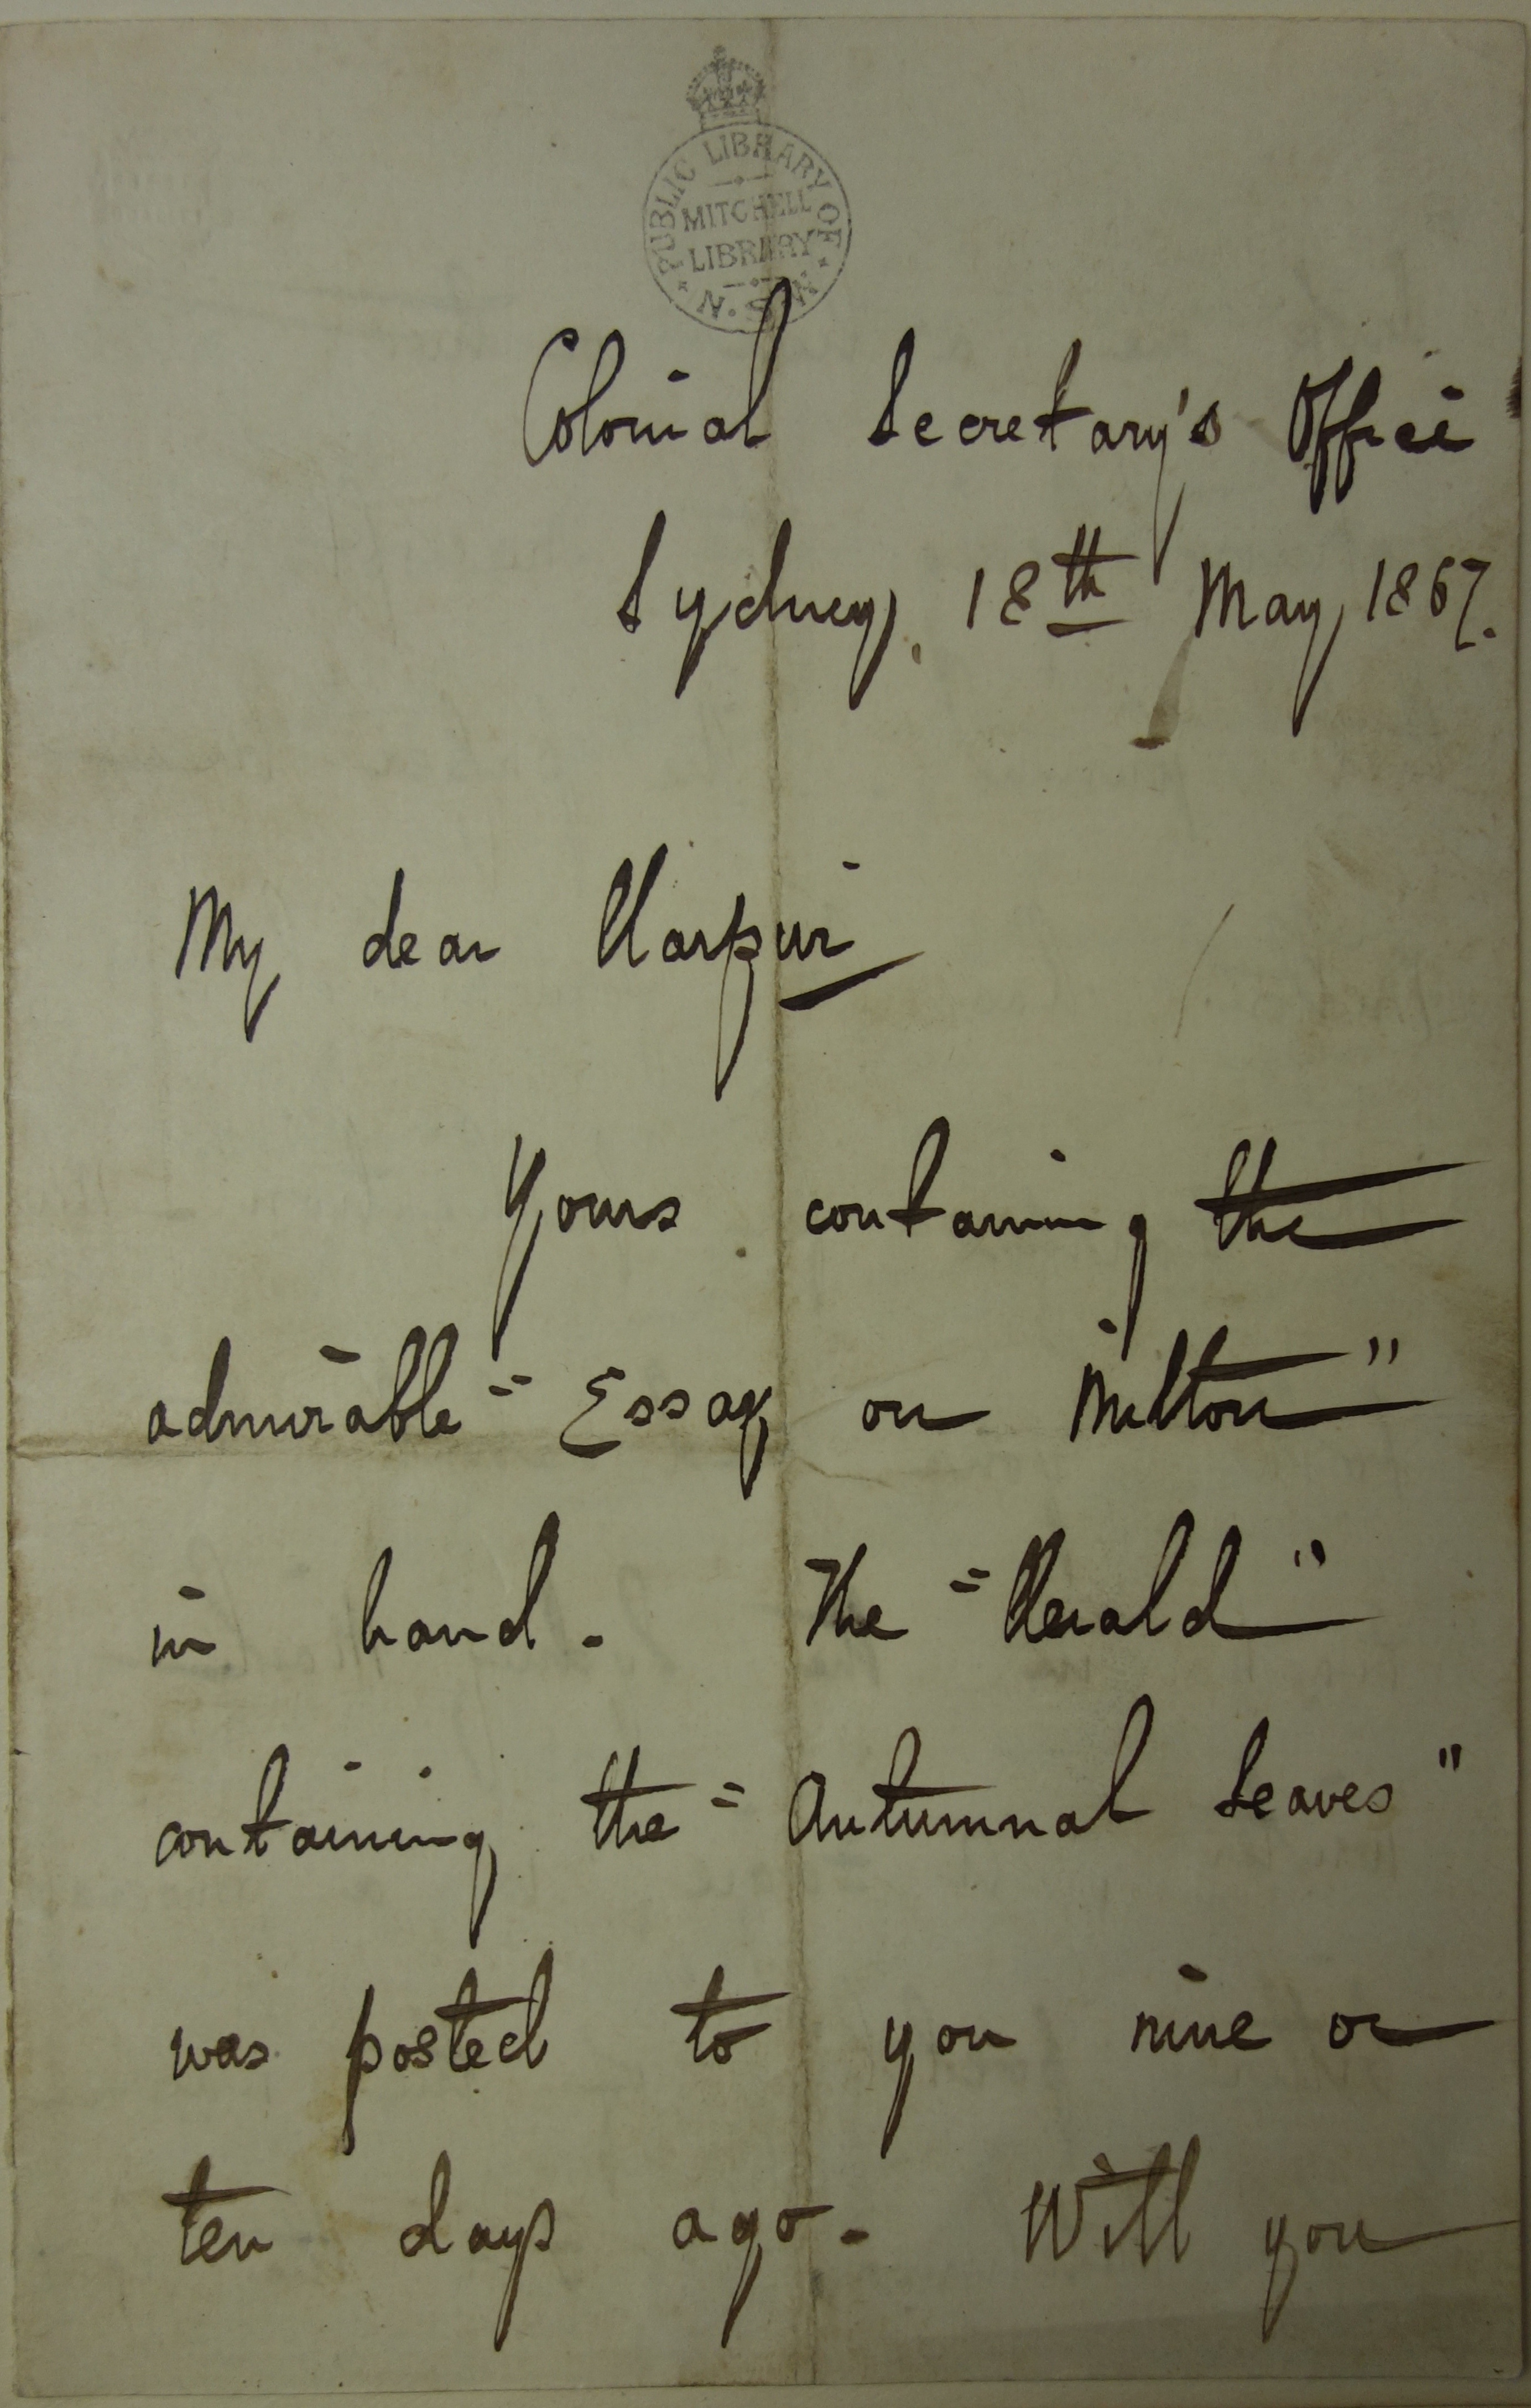 PUBLIC LIBRARY OF N.S.W.
MITCHELL
LIBRARY
Colonial Secretary's Office
Sydney, 18th May, 1867.
My dear Harpur
Yours containing the
admirable "Essay on Milton"
in hand. The "Herald"
containing the "Autumnal Leaves"
was posted to you nine or
ten days ago. Will you